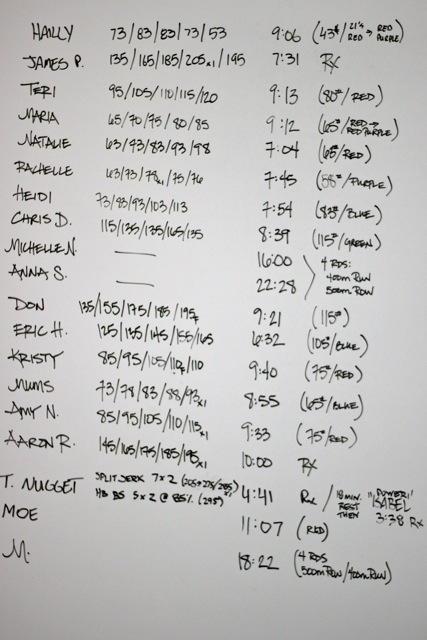 HAILLY 73/83/83/73/53 9:06 (43#/21's RED → RED PURPLE)
JAMES P. 135/165/185/205x1/195 7:31 Rx
TERI 95/105/110/115/120 9:13 (80#/RED)
MARIA 65/70/75/80/85 9:12 (65#/RED → RED PURPLE)
NATALIE 63/73/83/93/98 7:04 (65#/RED)
RACHELLE 63/73/78x1/75/76 7:45 (55#/PURPLE)
HEIDI 73/83/93/103/113 7:54 (83#/BLUE)
CHRIS D. 115/135/135/165/135 8:39 (115#/GREEN)
MICHELLE N. — 16:00 4 RDS:
400m RUN
ANNA S. — 22:28 500m ROW
DON 135/155/175/185/195 9:21 (115#)
ERIC H. 125/135/145/155/165 6:32 (105#/BLUE)
KRISTY 85/95/105/110x/110 9:40 (75#/RED)
MUMS 73/78/83/88/93x1 8:55 (65#/BLUE)
AMY N. 85/95/105/110/115x1 9:33 (75#/RED)
AARON R. 145/165/175/185/195x1 10:00 Rx
T. NUGGET SPLIT JERK 7x2 (205→275/285x1) 4:41 Rx / 10 MIN. REST THEN "POWER" ISABEL 3:38 Rx
HB BS 5x2 @ 85% (295#)
MOE 11:07 (RED)
M. 18:22 (4 RDS
500m ROW/400m RUN)